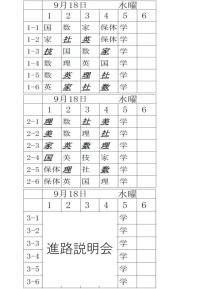 9月18日 水曜
1 2 3 4 5 6
1-1 国 数 家 保体 学
1-2 家 社 英 保体 学
1-3 技 国 数 家 学
1-4 数 理 英 国 学
1-5 数 英 理 社 学
1-6 英 家 社 数 学
9月18日 水曜
1 2 3 4 5 6
2-1 理 数 社 美 学
2-2 美 数 理 社 学
2-3 家 英 数 理 学
2-4 国 美 技 家 学
2-5 保体 理 社 数 学
2-6 保体 英 国 理 学
9月18日 水曜
1 2 3 4 5 6
3-1 学
3-2 学
3-3 学
進路説明会
3-4 学
3-5 学
3-6 学